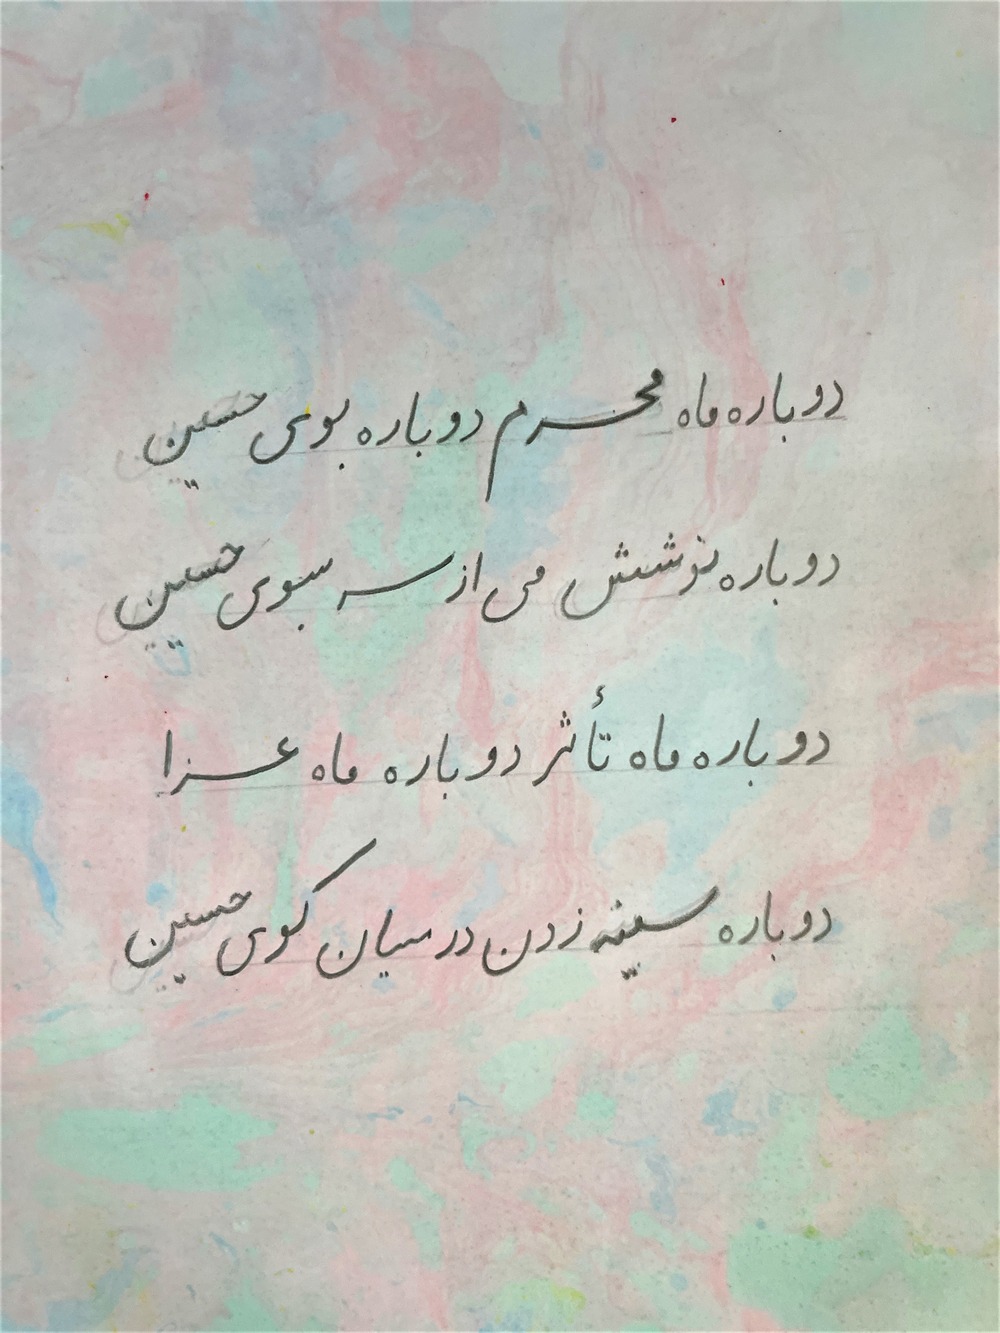 دوباره ماه محرم دوباره بوی حسین
دوباره نوشش می از سه سبوی حسین
دوباره ماه تأثر دوباره ماه عزا
دوباره سینه زدن در میان کوی حسین